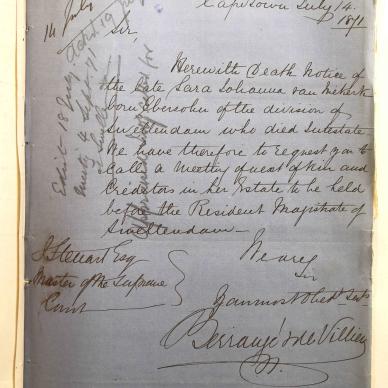 14 July
Capetown July 14.
1871
Sir,
Herewith Death Notice of
the late Sara Johanna van Niekerk
born Ebersohn of the division of
Swellendam who died Intestate
We have therefore to request you to
call a Meeting of next of kin and
Creditors in her Estate to be held
before the Resident Magistrate of
Swellendam —
We are,
Sir
Your most Obedt Sevts
Berrangé & de Villiers
J. Steuart Esq
Master of the Supreme
Court
Edict 18 July